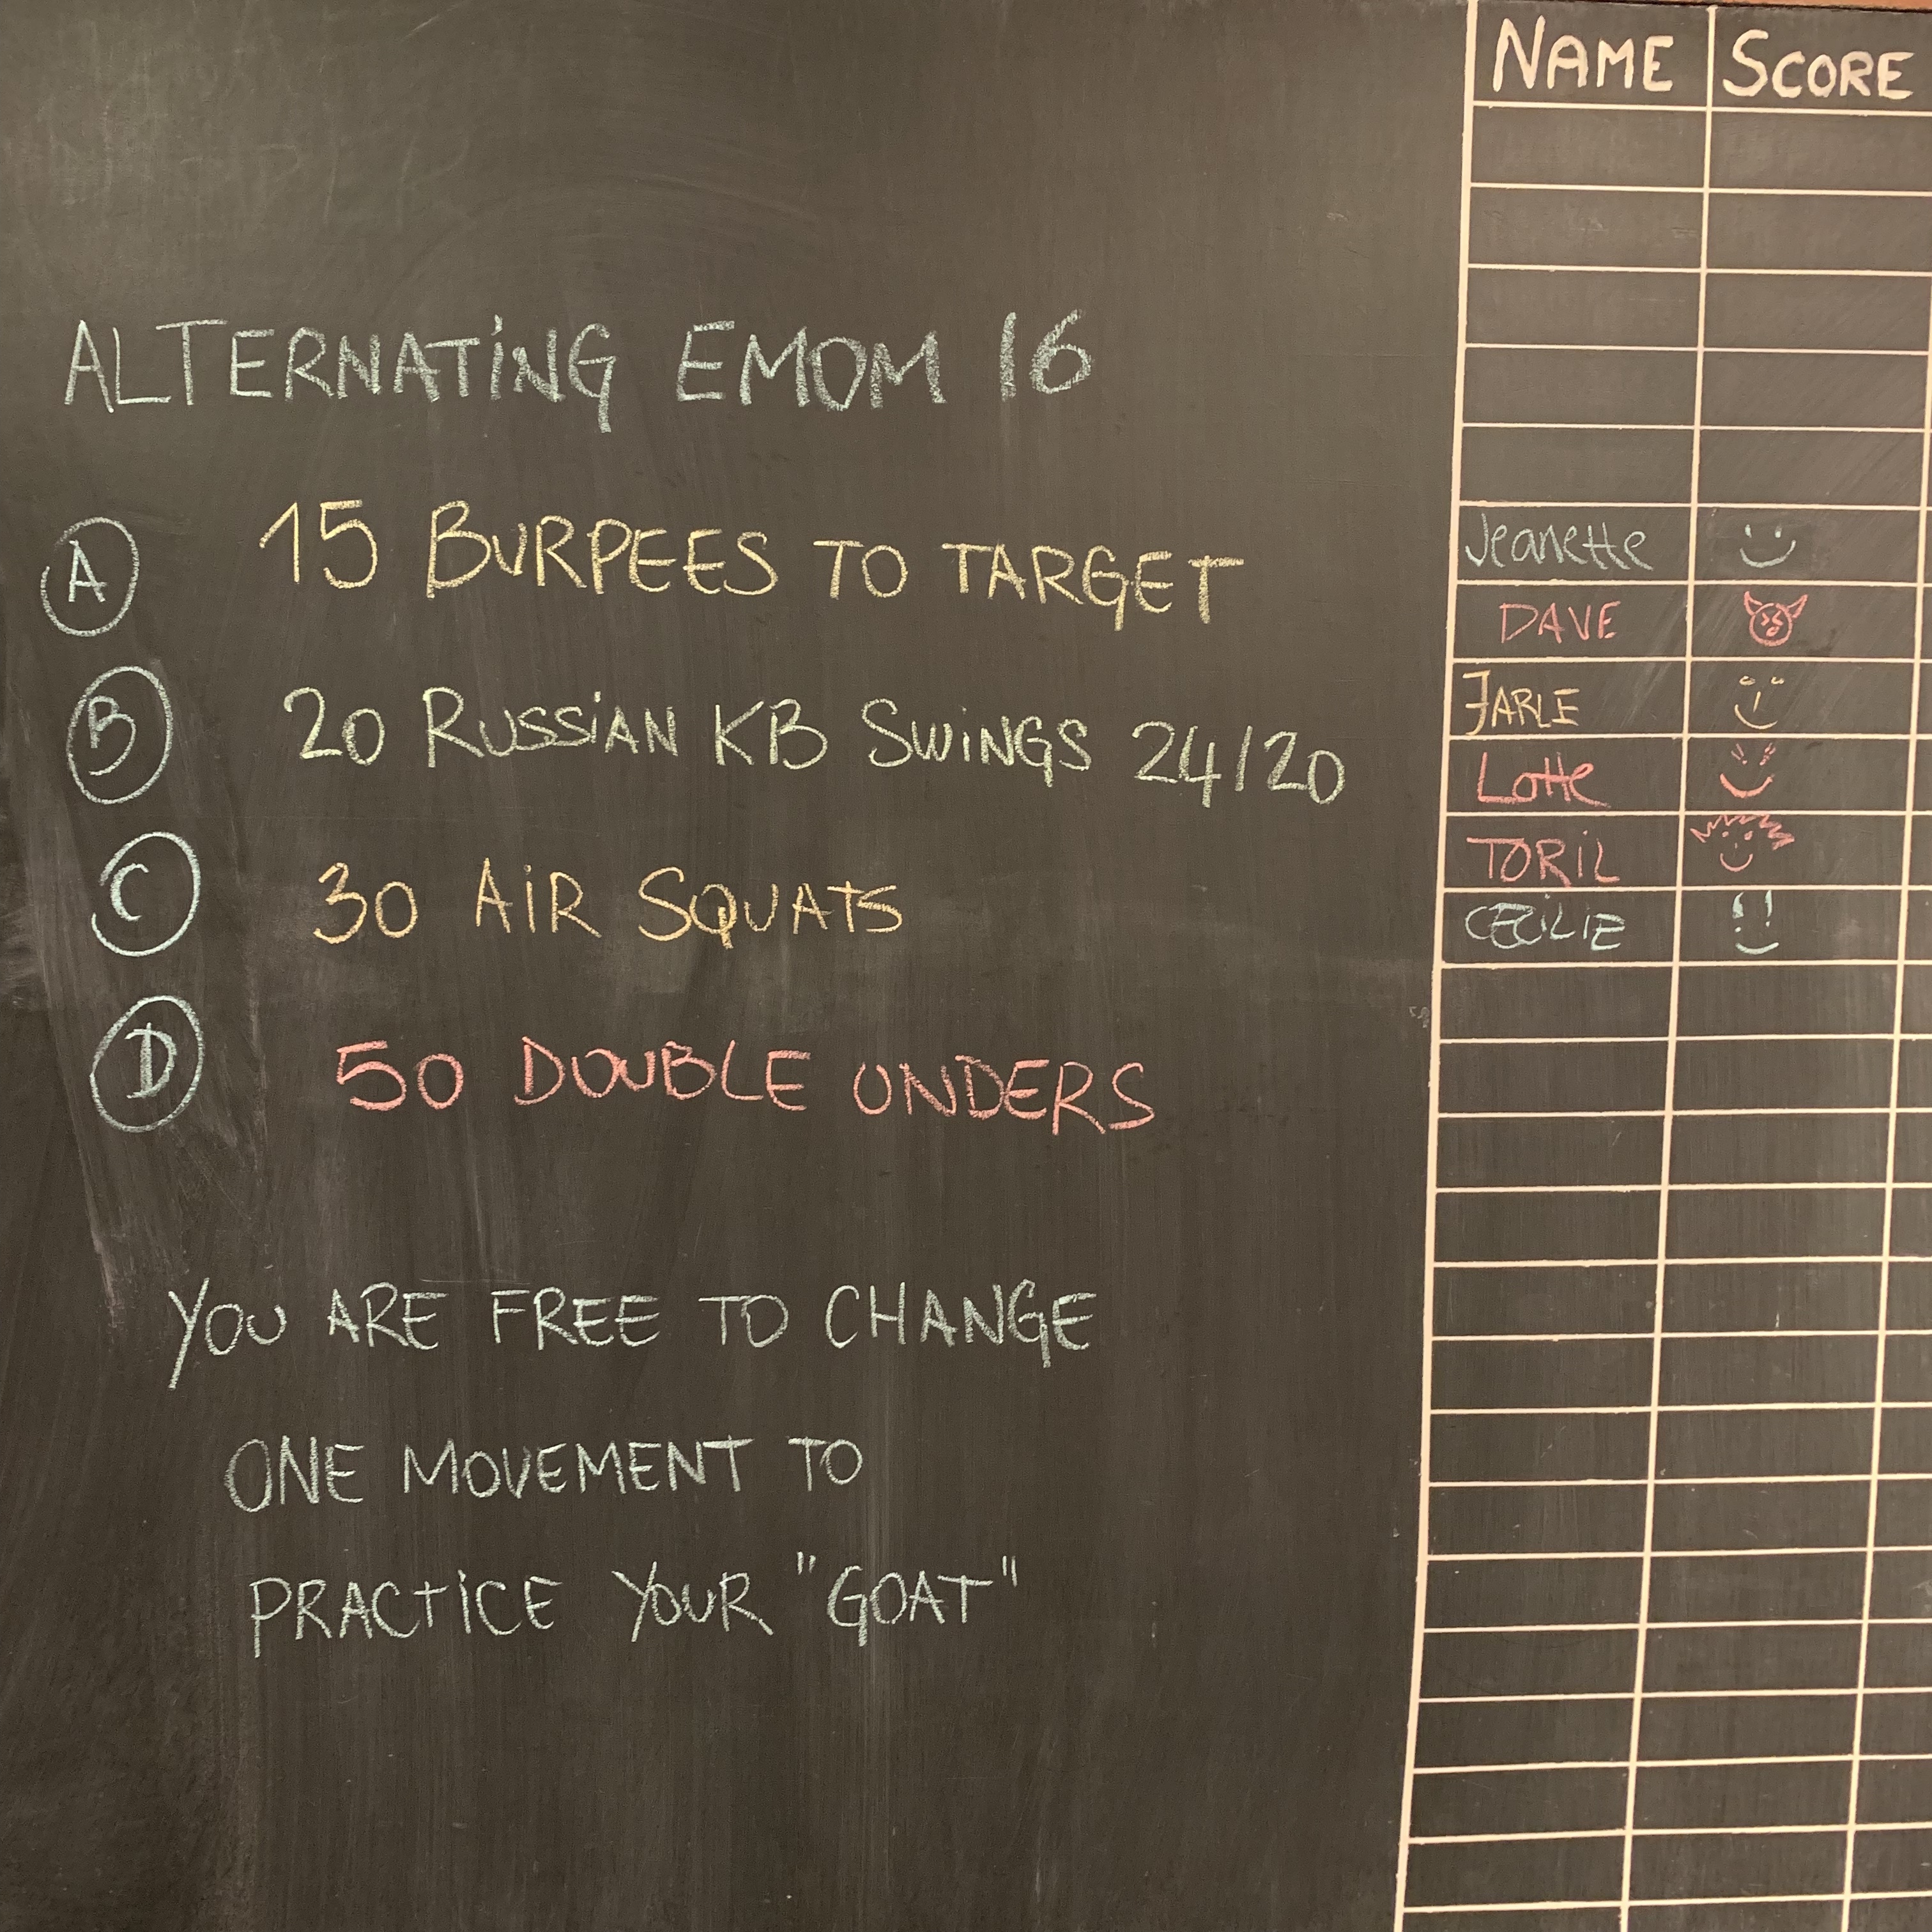 NAME SCORE
ALTERNATING EMOM 16
A 15 BURPEES TO TARGET
B 20 RUSSIAN KB SWINGS 24/20
C 30 AIR SQUATS
D 50 DOUBLE UNDERS
YOU ARE FREE TO CHANGE
ONE MOVEMENT TO
PRACTICE YOUR "GOAT"
Jeanette
DAVE
JARLE
Lotte
TORIL
CECILIE